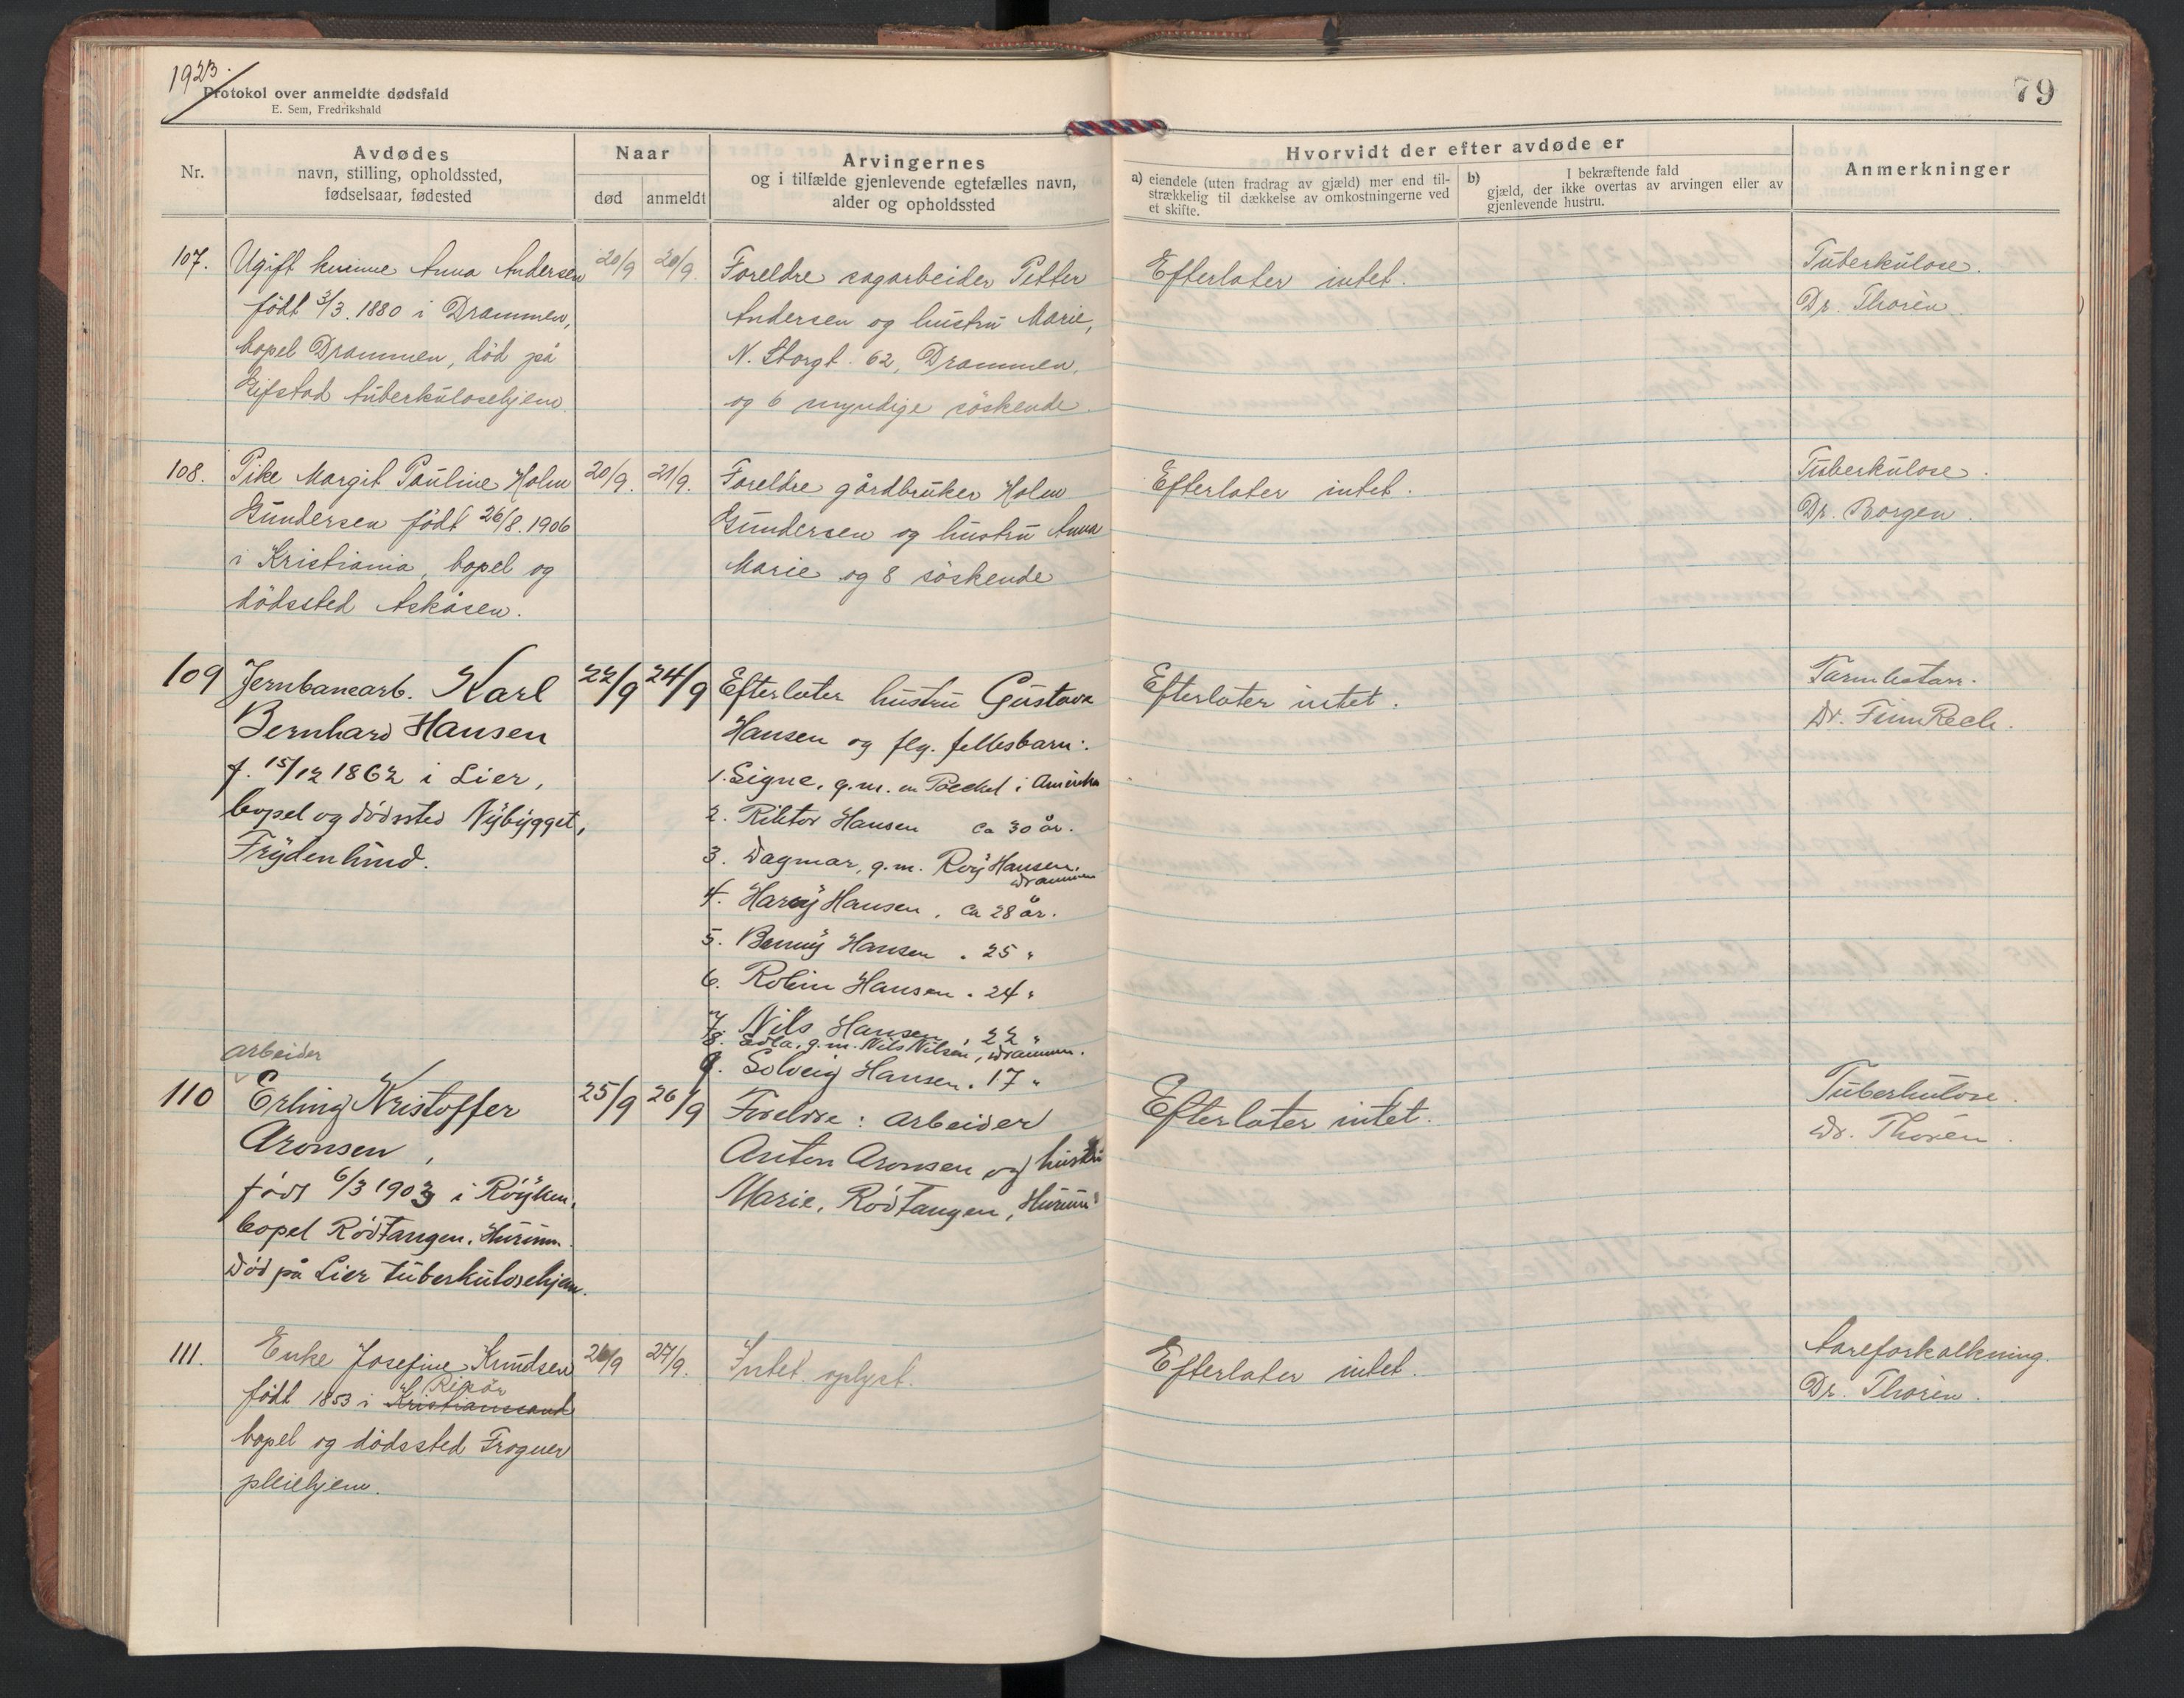 1923.
Protokol over anmeldte dødsfald
E. Sem, Fredrikshald
79
Nr.
Avdødes
navn, stilling, opholdssted,
fødselsaar, fødested
Naar
død
anmeldt
Arvingernes
og i tilfælde gjenlevende egtefælles navn,
alder og opholdssted
Hvorvidt der efter avdøde er
a) eiendele (uten fradrag av gjæld) mer end til-
strækkelig til dækkelse av omkostningerne ved
et skifte.
b) I bekræftende fald
gjæld, der ikke overtas av arvingen eller av
gjenlevende hustru.
Anmerkninger
107.
Ugift kvinne Anna Andersen
født 3/3. 1880 i Drammen,
bopel Drammen, död på
Eifstad tuberkulosehjem.
20/9
20/9.
Foreldre sagarbeider Petter
Andersen og hustru Marie,
N. Storgt. 62, Drammen,
og 6 myndige söskende.
Efterlater intet.
Tuberkulose.
Dr. Thorèn.
108.
Pike Margit Pauline Holm
Gundersen født 26/8. 1906
i Kristiania, bopel og
dödssted Askåsen.
20/9.
21/9.
Foreldre gårdbruker Holm
Gundersen og hustru Anna
Marie og 8 söskende
Efterlater intet.
Tuberkulose.
Dr. Borgen.
109
Jernbanearb. Karl
Bernhard Hansen
f. 15/12 1862 i Lier,
bopel og dödssted Nybygget,
Frydenlund.
22/9
24/9
Efterlater hustru Gustava
Hansen og flg. fellesbarn:
1. Signe, g.m. en i Amerika
2. Hansen ca 30 år.
3. Dagmar, g.m. Roy Hansen,
Drammen
4. Harry Hansen, ca 28 år.
5. Benny Hansen . 25 "
6. Robin Hansen . 24 "
7. Nils Hansen, 22 "
8. Edla, g.m. Nils Nilsen, Drammen.
9. Solveig Hansen . 17 "
Efterlater intet.
Tarmkatarr.
Dr. Finn
110
arbeider
Erling Kristoffer
Aronsen,
født 6/3 1903 i Röyken,
bopel Rödtangen, Hurum.
Död på Lier tuberkulosehjem.
25/9
26/9
Foreldre: arbeider
Anton Aronsen og hustru
Marie, Rödtangen, Hurum
Efterlater intet.
Tuberkulose.
Dr. Thorén.
111.
Enke Josefine Knudsen
Risör
født 1853 i Kristianssand
bopel og dödssted Frogner
pleiehjem.
26/9
27/9.
Intet oplyst.
Efterlater intet.
Aareforkalkning.
Dr. Thorèn.